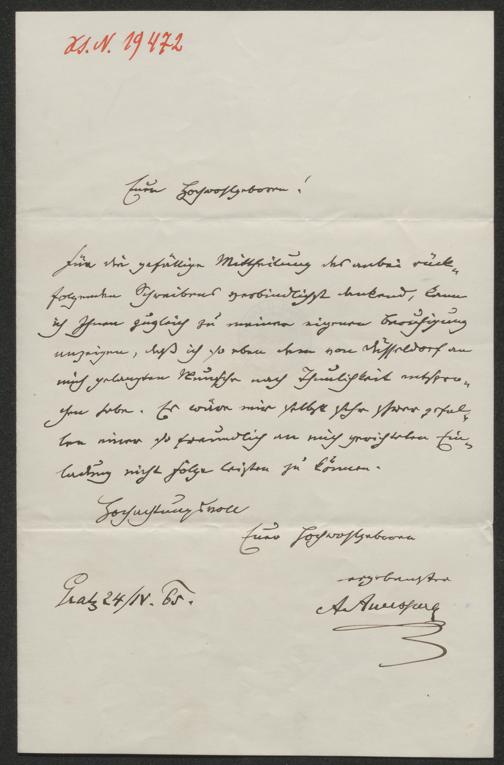 Hs. N. 19472
Euer Hochwohlgeboren!
Für die gefällige Mittheilung des anbei rück-
folgenden Schreibens verbindlichst dankend, kann
ich Ihnen zugleich zu meiner eigenen Beruhigung
anzeigen, daß ich so eben dem von Düsseldorf an
mich gelangten Wunsche nach Thunlichkeit entspro-
chen habe. Es wäre mir selbst sehr schwer gefal-
len einer so freundlich an mich gerichteten Ein-
ladung nicht Folge leisten zu können.
Hochachtungsvoll
Euer Hochwohlgeboren
ergebenster
Gratz 24/IV. 65.
A. Auersperg